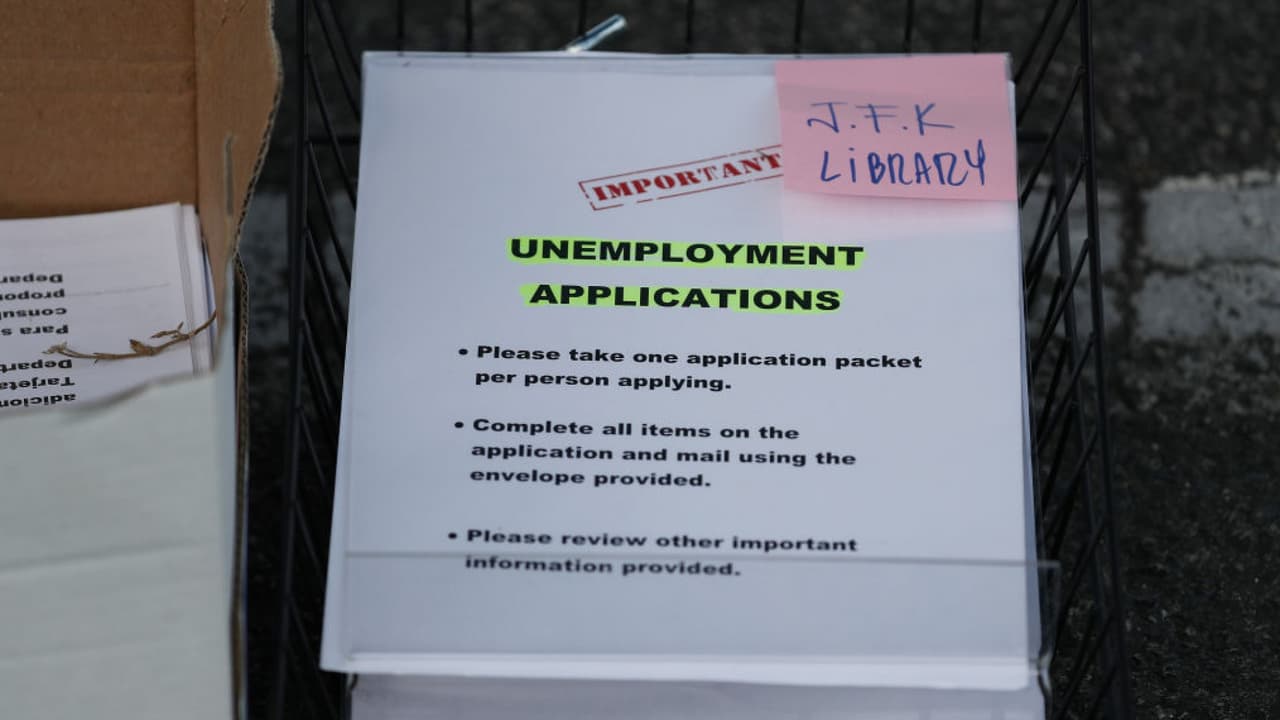 J.F.K
LiBRARY
IMPORTANT
UNEMPLOYMENT
APPLICATIONS
• Please take one application packet
per person applying.
• Complete all items on the
application and mail using the
envelope provided.
• Please review other important
information provided.
Depar
propor
consul
Para s
Depart
Tarjeta
adicion